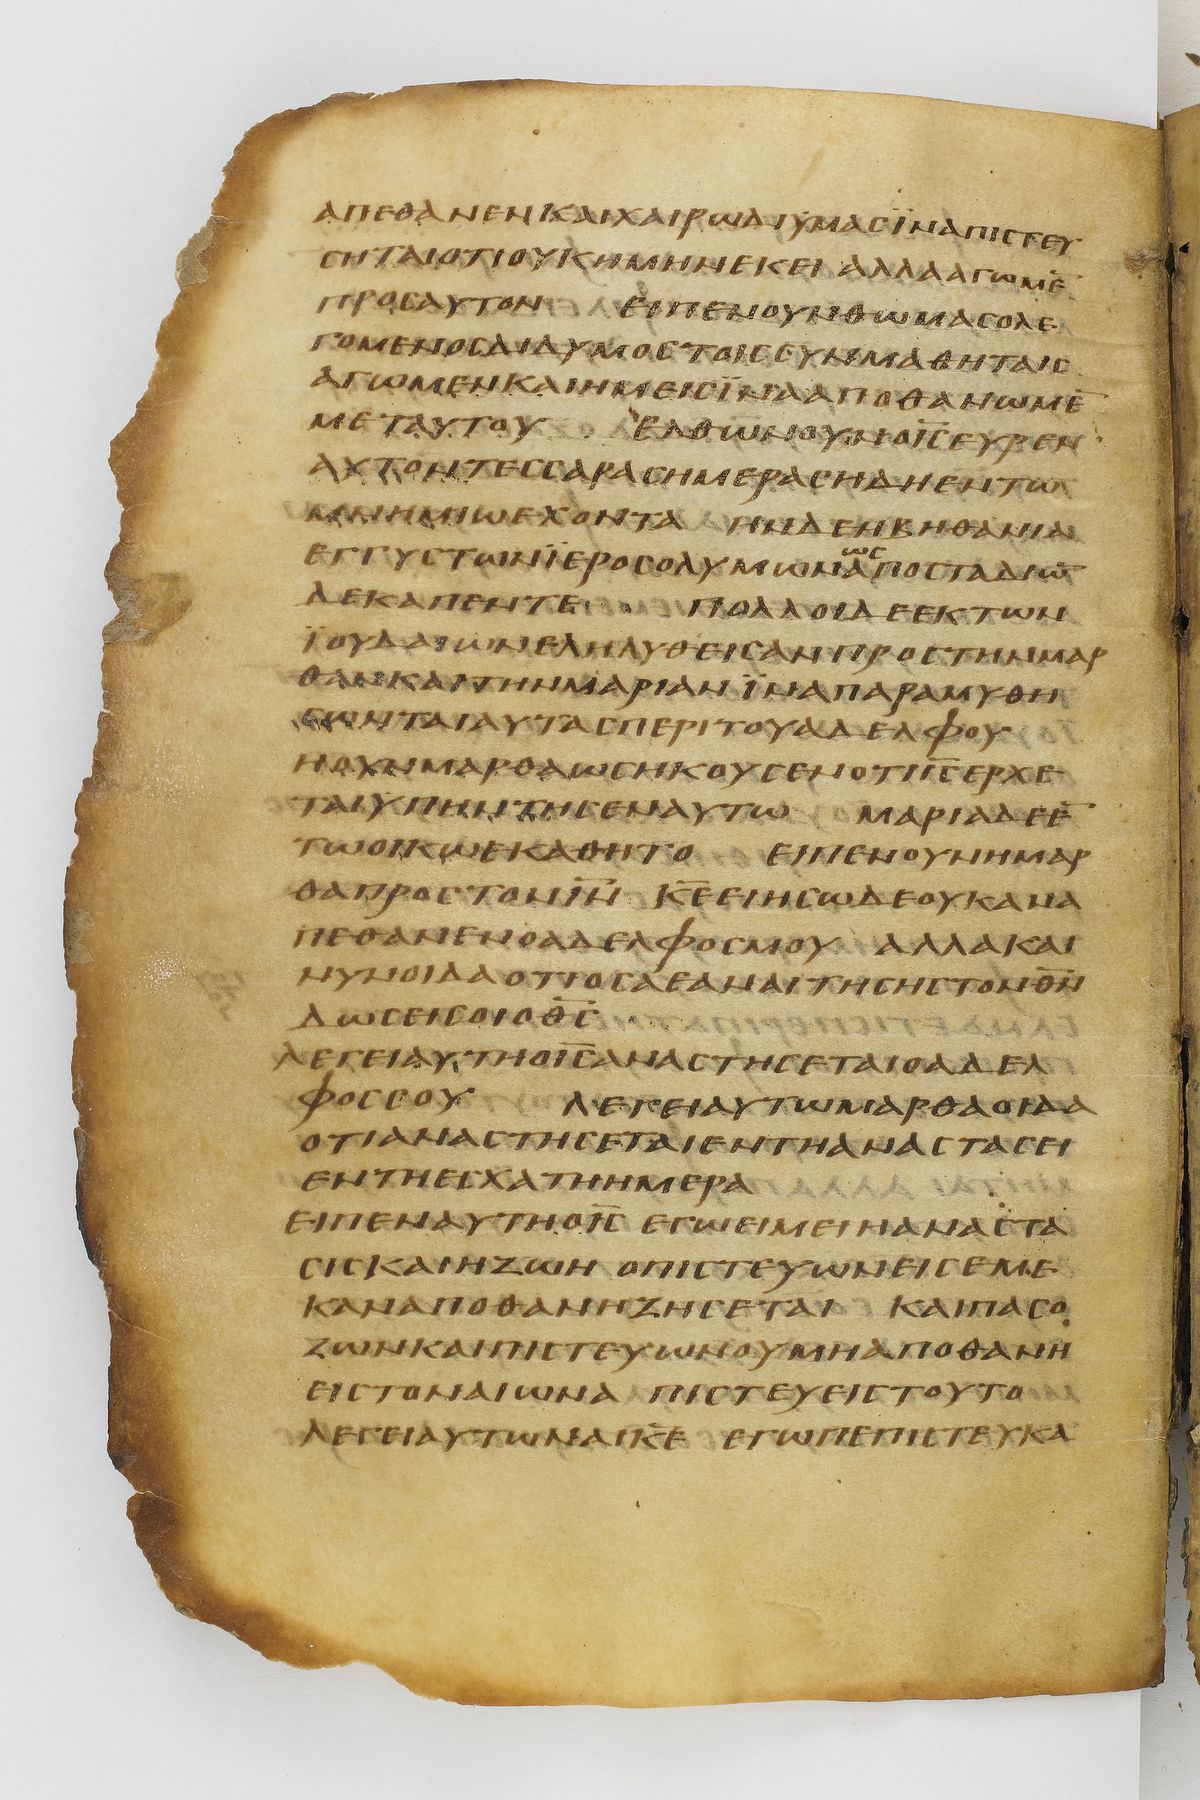 ΑΠΕΘΑΝΕΝΚΑΙΧΑΙΡΩΔΙΫΜΑCΪΝΑΠΙCΤΕΥ
CΗΤΑΙΟΤΙΟΥΚΗΜΗΝΕΚΕΙ ΑΛΛΑΑΓΩΜΕ̅
ΠΡΟCΑΥΤΟΝ ΕΙΠΕΝΟΥΝΘΩΜΑCΟΛΕ
ΓΟΜΕΝΟCΔΙΔΥΜΟCΤΟΙCCΥΝΜΑΘΗΤΑΙC
ΑΓΩΜΕΝΚΑΙΗΜΕΙCΪΝΑΑΠΟΘΑΝΩΜΕ̅
ΜΕΤΑΥΤΟΥ ΕΛΘΩΝΟΥΝΟΙ̅C̅ΕΥΡΕΝ
ΑΥΤΟΝΤΕCCΑΡΑCΗΜΕΡΑCΗΔΗΕΝΤΩ
ΜΝΗΜΙΩΕΧΟΝΤΑ ΗΝΔΕΝΒΗΘΑΝΙΑ
ΕΓΓΥCΤΩΝΪΕΡΟCΟΛΥΜΩΝΩCΑΠΟCΤΑΔΙΩ̅
ΔΕΚΑΠΕΝΤΕ ΠΟΛΛΟΙΔΕΕΚΤΩΝ
ΪΟΥΔΑΙΩΝΕΛΗΛΥΘΕΙCΑΝΠΡΟCΤΗΝΜΑΡ
ΘΑΝΚΑΙΤΗΝΜΑΡΙΑΝΪΝΑΠΑΡΑΜΥΘΗ
CΩΝΤΑΙΑΥΤΑCΠΕΡΙΤΟΥΑΔΕΛΦΟΥ
ΗΟΥΝΜΑΡΘΑΩCΗΚΟΥCΕΝΟΤΙΙ̅C̅ΕΡΧΕ
ΤΑΙΥΠΗΝΤΗCΕΝΑΥΤΩ ΜΑΡΙΑΔΕΕ̅
ΤΩΟΙΚΩΕΚΑΘΗΤΟ ΕΙΠΕΝΟΥΝΗΜΑΡ
ΘΑΠΡΟCΤΟΝΙ̅Ν̅ Κ̅Ε̅ΕΙΗCΩΔΕΟΥΚΑΝΑ
ΠΕΘΑΝΕΝΟΑΔΕΛΦΟCΜΟΥ ΑΛΛΑΚΑΙ
ΝΥΝΟΙΔΑΟΤΙΟCΑΕΑΝΑΙΤΗCΗCΤΟΝΘ̅Ν̅
ΔΩCΕΙCΟΙΟΘ̅C̅
ΛΕΓΕΙΑΥΤΗΟΙ̅C̅ΑΝΑCΤΗCΕΤΑΙΟΑΔΕΛ
ΦΟCCΟΥ ΛΕΓΕΙΑΥΤΩΜΑΡΘΑΟΙΔΑ
ΟΤΙΑΝΑCΤΗCΕΤΑΙΕΝΤΗΑΝΑCΤΑCΕΙ
ΕΝΤΗΕCΧΑΤΗΗΜΕΡΑ
ΕΙΠΕΝΑΥΤΗΟΙ̅C̅ ΕΓΩΕΙΜΕΙΗΑΝΑCΤΑ
CΙCΚΑΙΗΖΩΗ ΟΠΙCΤΕΥΩΝΕΙCΕΜΕ
ΚΑΝΑΠΟΘΑΝΗΖΗCΕΤΑΙ ΚΑΙΠΑCΟ
ΖΩΝΚΑΙΠΙCΤΕΥΩΝΟΥΜΗΑΠΟΘΑΝΗ
ΕΙCΤΟΝΑΙΩΝΑ ΠΙCΤΕΥΕΙCΤΟΥΤΟ
ΛΕΓΕΙΑΥΤΩΝΑΙΚ̅Ε̅ ΕΓΩΠΕΠΙCΤΕΥΚΑ